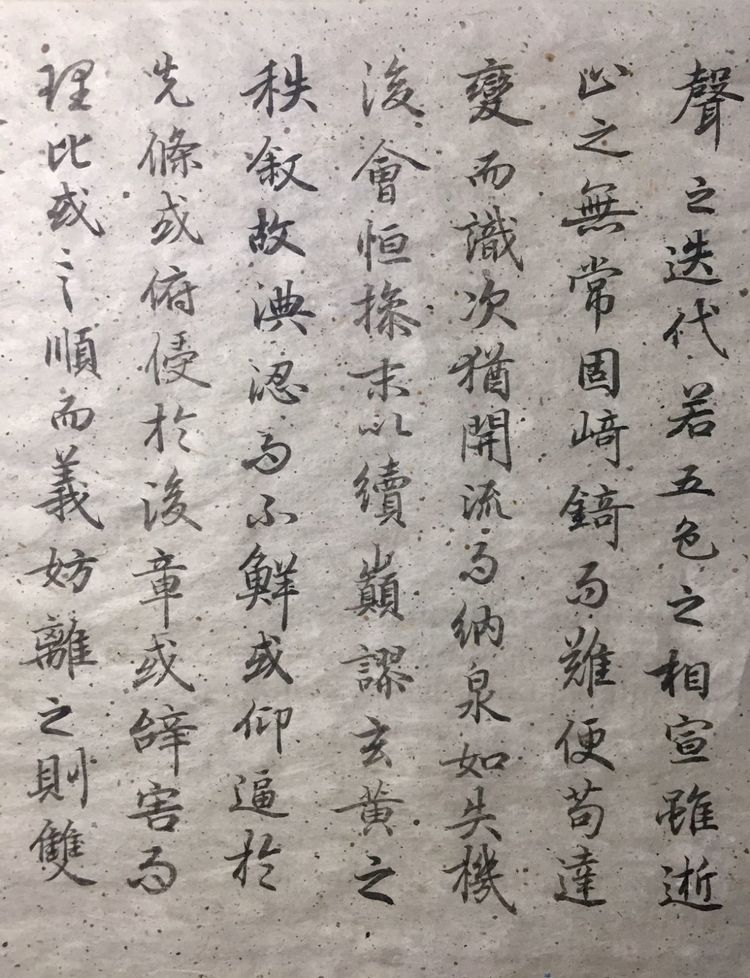 聲之迭代若五色之相宣雖逝
止之無常固﨑錡而難便苟達
變而識次猶開流而納泉如失機
後會恒操末以續巔謬玄黄之
秩叙故淟涊而不鮮或仰逼於
先條或俯侵於後章或辝害而
理比或言順而義妨離之則雙